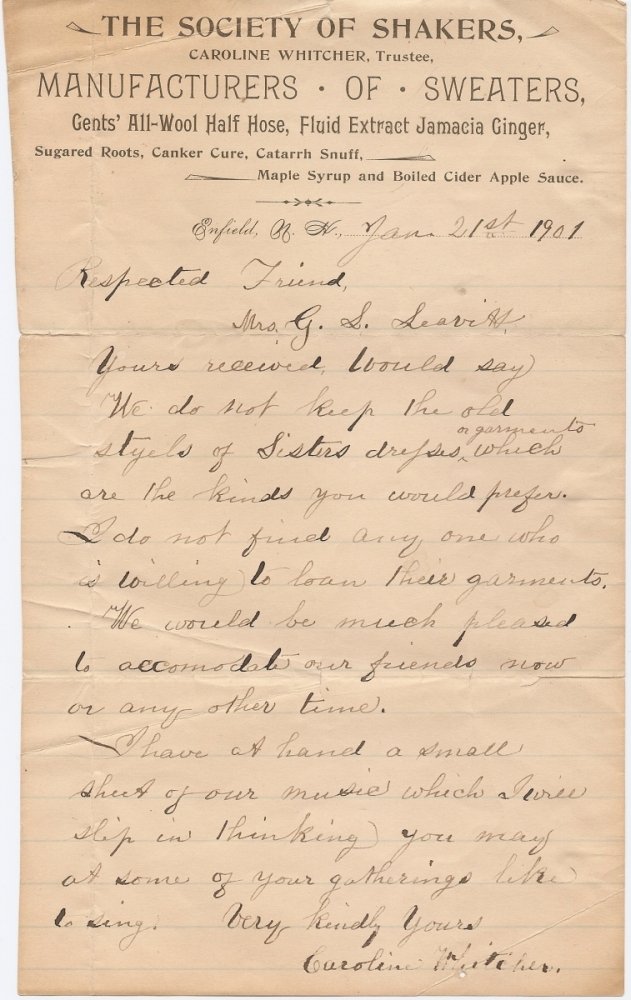 THE SOCIETY OF SHAKERS,
CAROLINE WHITCHER, Trustee,
MANUFACTURERS · OF · SWEATERS,
Gents' All-Wool Half Hose, Fluid Extract Jamacia Ginger,
Sugared Roots, Canker Cure, Catarrh Snuff,
Maple Syrup and Boiled Cider Apple Sauce.
Enfield, N. H., Jan. 21st 1901
Respected Friend,
Mrs. G. S. Leavitt,
Yours received, Would say
We do not keep the old
or garments
styels of Sisters dresses, which
are the kinds you would prefer.
I do not find any one who
is willing to loan their garments.
We would be much pleased
to accomodate our friends now
or any other time.
I have at hand a small
sheet of our music which I will
slip in thinking you may
at some of your gatherings like
to sing. Very kindly Yours
Caroline Whitcher.